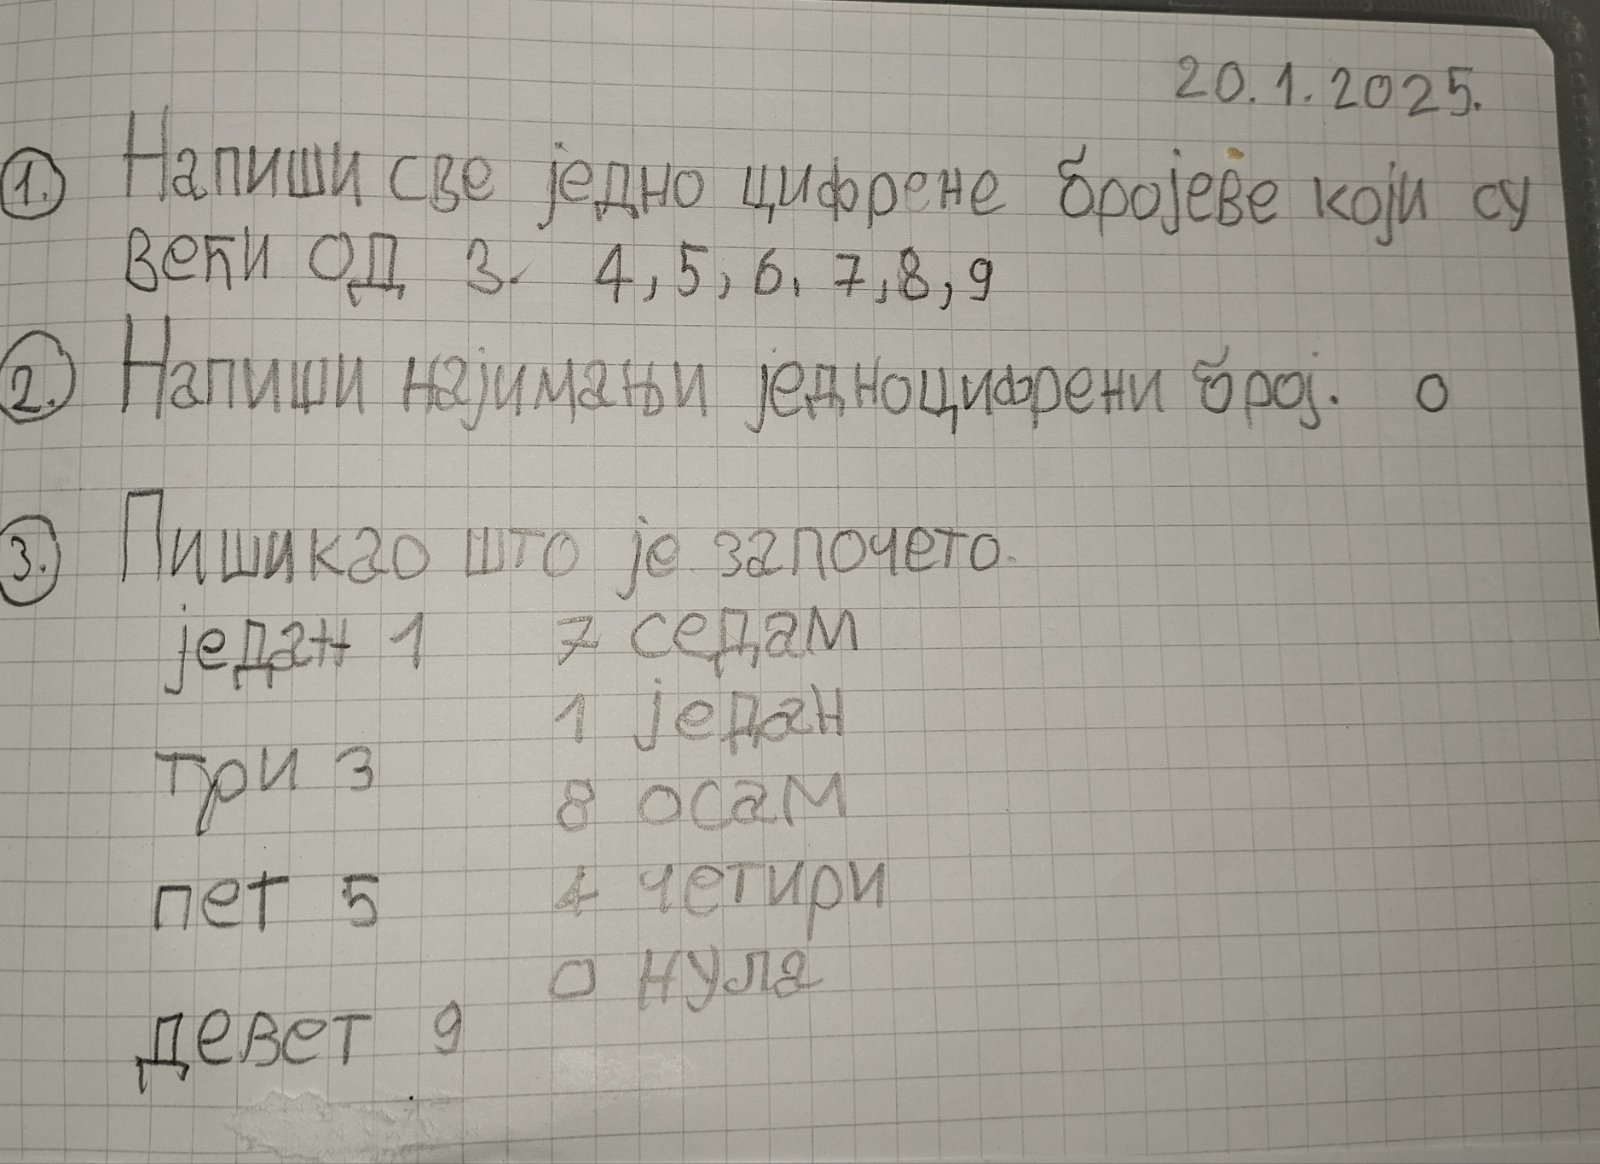 20.1.2025.
1. Напиши све једно цифрене бројеве који су
већи од 3. 4, 5, 6, 7, 8, 9
2. Напиши најимањи једноцифрени број. 0
3. Пиши као што је започето.
један 1 7 седам
1 један
три 3
8 осам
пет 5 4 четири
0 нула
девет 9